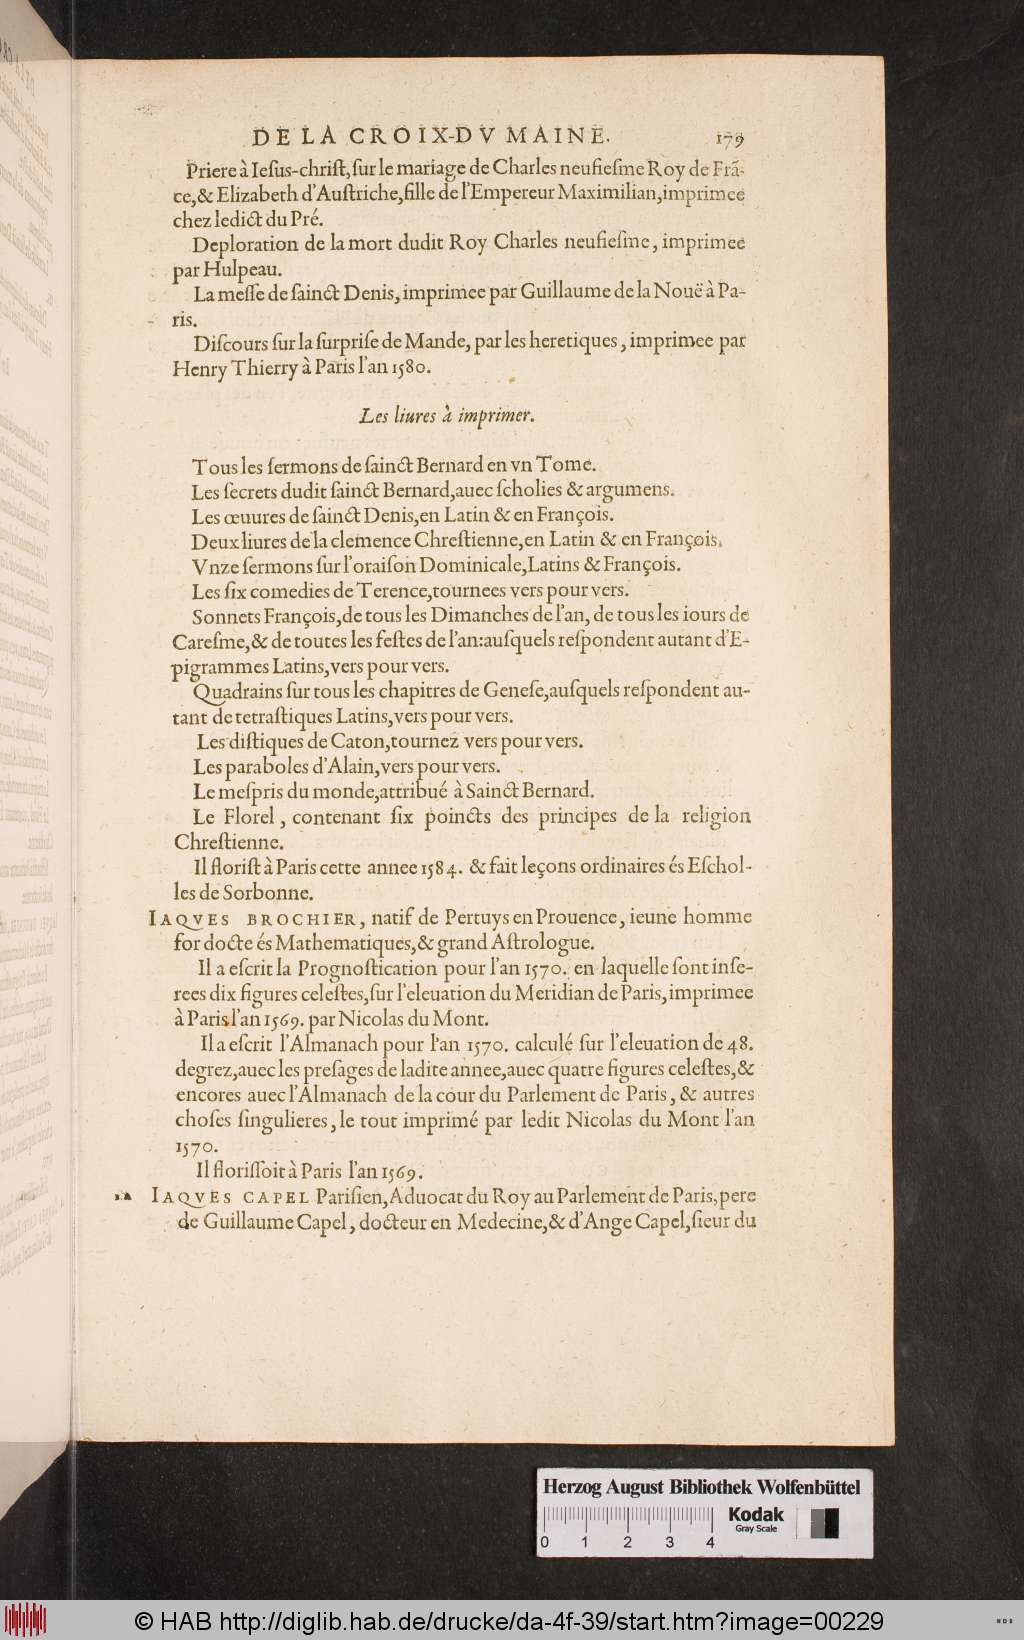 DE LA CROIX-DV MAINE. 179
Priere à Iesus-christ, sur le mariage de Charles neufiesme Roy de Frã-
ce, & Elizabeth d'Austriche, fille de l'Empereur Maximilian, imprimee
chez ledict du Pré.
Deploration de la mort dudit Roy Charles neufiesme, imprimee
par Hulpeau.
La messe de sainct Denis, imprimee par Guillaume de la Nouë à Pa-
ris.
Discours sur la surprise de Mande, par les heretiques, imprimee par
Henry Thierry à Paris l'an 1580.
Les liures à imprimer.
Tous les sermons de sainct Bernard en vn Tome.
Les secrets dudit sainct Bernard, auec scholies & argumens.
Les œuures de sainct Denis, en Latin & en François.
Deux liures de la clemence Chrestienne, en Latin & en François.
Vnze sermons sur l'oraison Dominicale, Latins & François.
Les six comedies de Terence, tournees vers pour vers.
Sonnets François, de tous les Dimanches de l'an, de tous les iours de
Caresme, & de toutes les festes de l'an: ausquels respondent autant d'E-
pigrammes Latins, vers pour vers.
Quadrains sur tous les chapitres de Genese, ausquels respondent au-
tant de tetrastiques Latins, vers pour vers.
Les distiques de Caton, tournez vers pour vers.
Les paraboles d'Alain, vers pour vers.
Le mespris du monde, attribué à Sainct Bernard.
Le Florel, contenant six poincts des principes de la religion
Chrestienne.
Il florist à Paris cette annee 1584. & fait leçons ordinaires és Eschol-
les de Sorbonne.
IAQVES BROCHIER, natif de Pertuys en Prouence, ieune homme
for docte és Mathematiques, & grand Astrologue.
Il a escrit la Prognostication pour l'an 1570. en laquelle sont inse-
rees dix figures celestes, sur l'eleuation du Meridian de Paris, imprimee
à Paris l'an 1569. par Nicolas du Mont.
Il a escrit l'Almanach pour l'an 1570. calculé sur l'eleuation de 48.
degrez, auec les presages de ladite annee, auec quatre figures celestes, &
encores auec l'Almanach de la cour du Parlement de Paris, & autres
choses singulieres, le tout imprimé par ledit Nicolas du Mont l'an
1570.
Il florissoit à Paris l'an 1569.
IAQVES CAPEL Parisien, Aduocat du Roy au Parlement de Paris, pere
de Guillaume Capel, docteur en Medecine, & d'Ange Capel, sieur du
Herzog August Bibliothek Wolfenbüttel
Kodak
Gray Scale
0 1 2 3 4
© HAB http://diglib.hab.de/drucke/da-4f-39/start.htm?image=00229